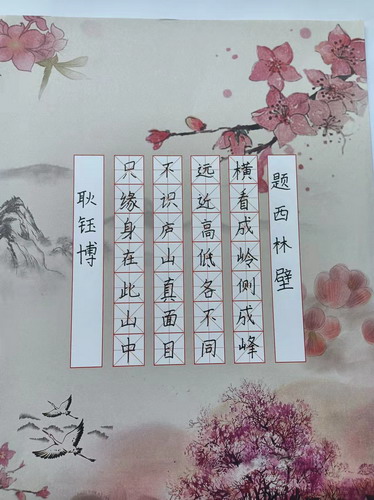 题西林壁
横看成岭侧成峰
远近高低各不同
不识庐山真面目
只缘身在此山中
耿钰博